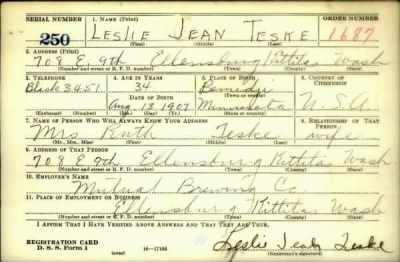 SERIAL NUMBER 1. NAME (Print) ORDER NUMBER
250 LESLIE JEAN TESKE 1687
(First) (Middle) (Last)
2. ADDRESS (Print)
708 E 9th Ellensburg Kittitas Wash
(Number and street or R. F. D. number) (Town) (County) (State)
3. TELEPHONE 4. AGE IN YEARS 5. PLACE OF BIRTH 6. COUNTRY OF CITIZENSHIP
Black 3451 34 Bemidji
DATE OF BIRTH (Town or county)
Aug 13 1907 Minnesota U.S.A.
(Exchange) (Number) (Mo.) (Day) (Yr.) (State or country)
7. NAME OF PERSON WHO WILL ALWAYS KNOW YOUR ADDRESS 8. RELATIONSHIP OF THAT PERSON
Mrs Ruth Teske wife
(Mr., Mrs., Miss) (First) (Middle) (Last)
9. ADDRESS OF THAT PERSON
708 E 9th Ellensburg Kittitas Wash
(Number and street or R. F. D. number) (Town) (County) (State)
10. EMPLOYER'S NAME
Mutual Brewing Co
11. PLACE OF EMPLOYMENT OR BUSINESS
Ellensburg Kittitas Wash
(Number and street or R. F. D. number) (Town) (County) (State)
I AFFIRM THAT I HAVE VERIFIED ABOVE ANSWERS AND THAT THEY ARE TRUE.
REGISTRATION CARD
D. S. S. Form 1 (over) 16—17105 Leslie Jean Teske
(Registrant's signature)